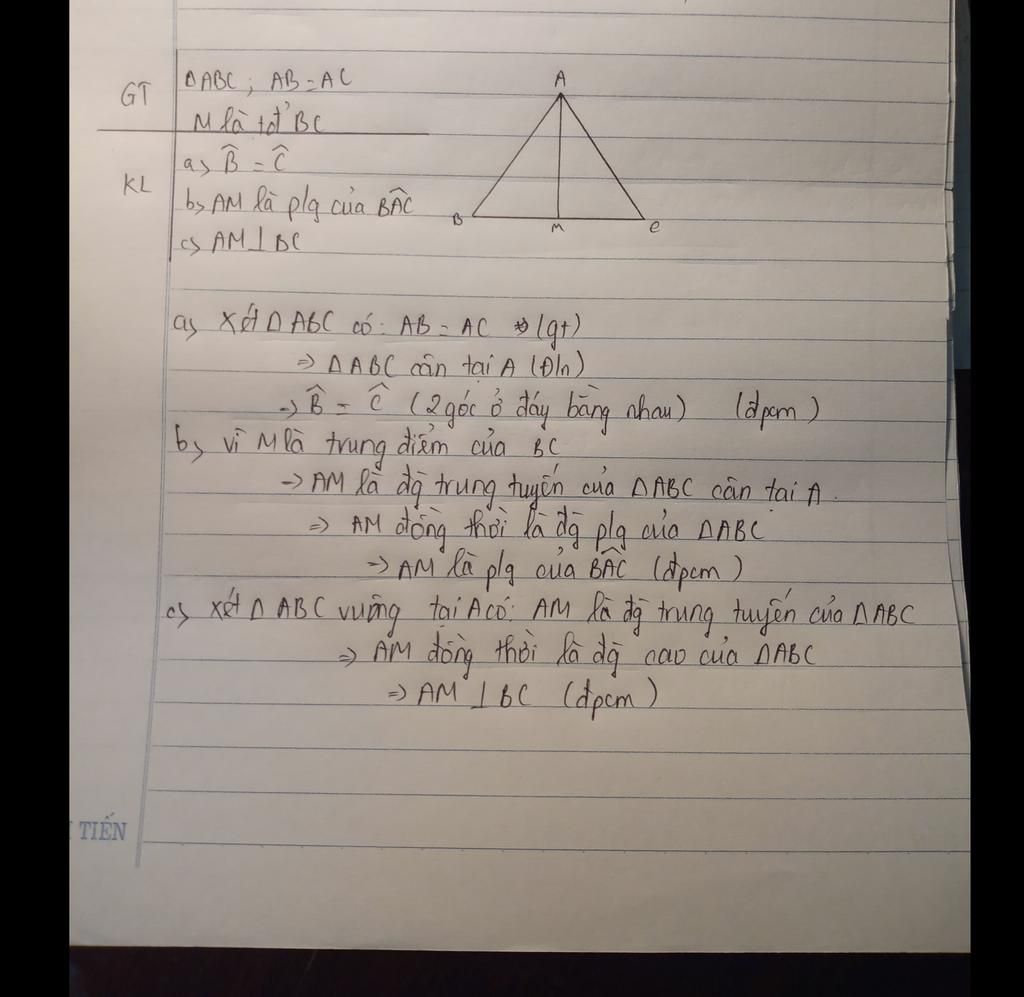 GT
ΔABC ; AB = AC
M là tđ' BC
KL
a, B̂ = Ĉ
b, AM là p/g của BÂC
c, AM ⊥ BC
A
B
M
C
a, Xét Δ ABC có: AB = AC (gt)
=> Δ ABC cân tại A (Đ/n)
=> B̂ = Ĉ (2 góc ở đáy bằng nhau) (đpcm)
b, vì M là trung điểm của BC
=> AM là đg̀ trung tuyến của ΔABC cân tại A.
=> AM đồng thời là đg̀ p/g của ΔABC
=> AM là p/g của BÂC (đpcm)
c, Xét Δ ABC vuông tại A có: AM là đg̀ trung tuyến của ΔABC
=> AM đồng thời là đg̀ cao của ΔABC
=> AM ⊥ BC (đpcm)
TIẾN